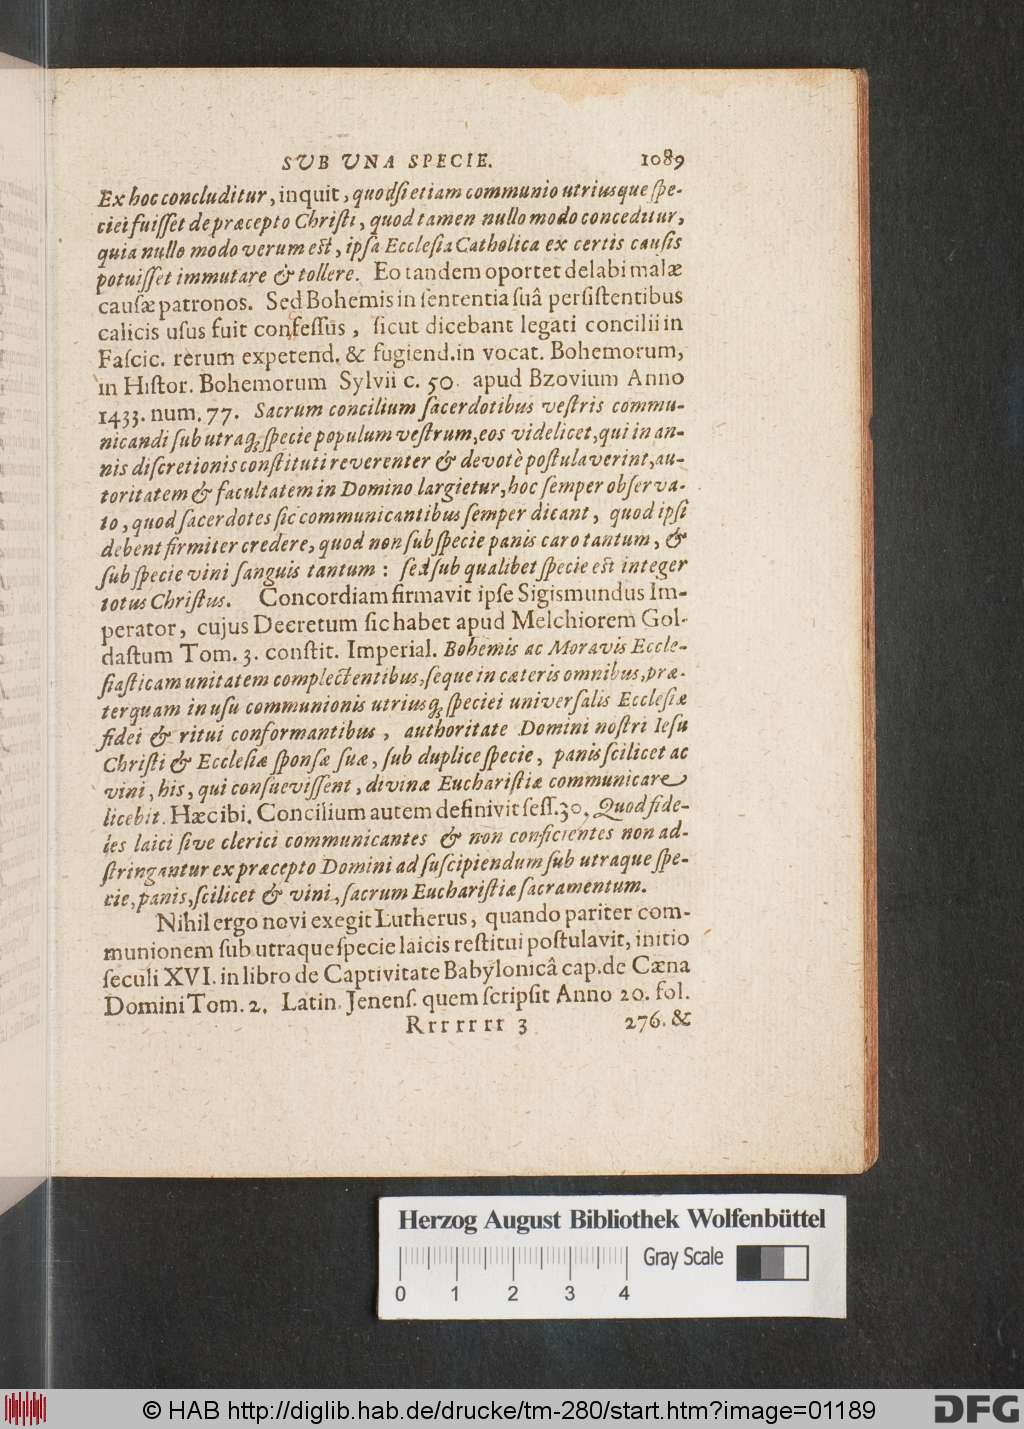 SUB UNA SPECIE. 1089
Ex hoc concluditur, inquit, quodsi etiam communio utriusque spe-
ciei fuisset de præcepto Christi, quod tamen nullo modo conceditur,
quia nullo modo verum est, ipsa Ecclesia Catholica ex certis causis
potuisset immutare & tollere. Eo tandem oportet delabi malæ
causæ patronos. Sed Bohemis in sententia suâ persistentibus
calicis usus fuit confessus, sicut dicebant legati concilii in
Fascic. rerum expetend. & fugiend. in vocat. Bohemorum,
in Histor. Bohemorum Sylvii c. 50. apud Bzovium Anno
1433. num. 77. Sacrum concilium sacerdotibus vestris commu-
nicandi sub utraq; specie populum vestrum, eos videlicet, qui in an-
nis discretionis constituti reverenter & devotè postulaverint, au-
toritatem & facultatem in Domino largietur, hoc semper observa-
to, quod sacerdotes sic communicantibus semper dicant, quod ipsi
debent firmiter credere, quod non sub specie panis caro tantum, &
sub specie vini sanguis tantum: sed sub qualibet specie est integer
totus Christus. Concordiam firmavit ipse Sigismundus Im-
perator, cujus Decretum sic habet apud Melchiorem Gol-
dastum Tom. 3. constit. Imperial. Bohemis ac Moravis Eccle-
siasticam unitatem complectentibus, seque in cæteris omnibus, præ-
terquam in usu communionis utriusq; speciei universalis Ecclesiæ
fidei & ritui conformantibus, authoritate Domini nostri Iesu
Christi & Ecclesiæ sponsæ suæ, sub duplice specie, panis scilicet ac
vini, his, qui consuevissent, divinæ Eucharistiæ communicare
licebit. Hæc ibi. Concilium autem definivit sess. 30. Quod fide-
les laici sive clerici communicantes & non conficientes non ad-
stringantur ex præcepto Domini ad suscipiendum sub utraque spe-
cie, panis, scilicet & vini, sacrum Eucharistiæ sacramentum.
Nihil ergo novi exegit Lutherus, quando pariter com-
munionem sub utraque specie laicis restitui postulavit, initio
seculi XVI. in libro de Captivitate Babylonicâ cap. de Cæna
Domini Tom. 2. Latin. Jenens. quem scripsit Anno 20. fol.
Rrrrrrr 3 276. &
Herzog August Bibliothek Wolfenbüttel
Gray Scale
0 1 2 3 4
© HAB http://diglib.hab.de/drucke/tm-280/start.htm?image=01189
DFG